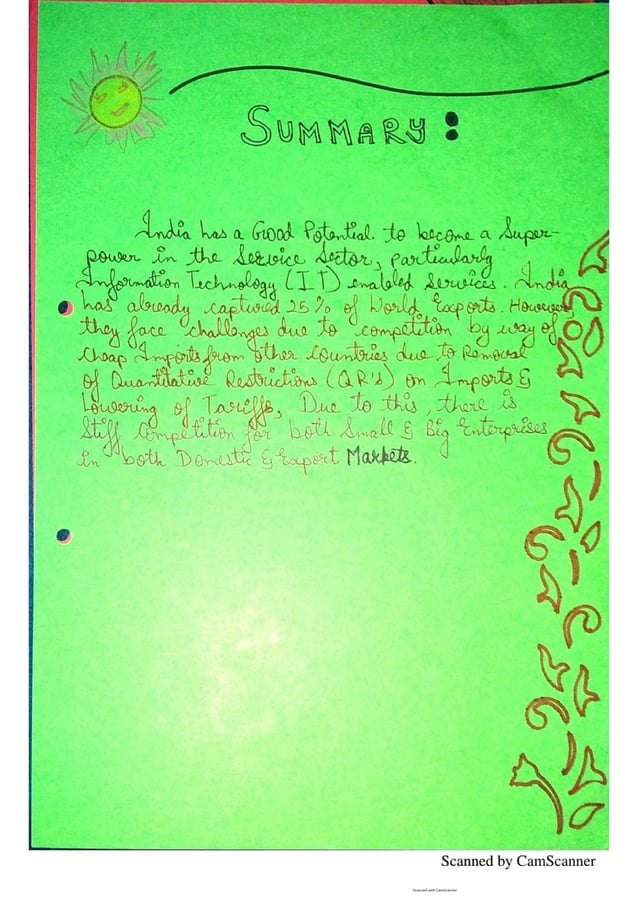 SUMMARY :
India has a Good Potential to become a Super-
power in the Service Sector, particularly
Information Technology (IT) enabled services. India
has already captured 25% of World Exports. However
they face challenges due to competition by way of
Cheap Imports from other Countries due to Removal
of Quantitative Restrictions (QR's) on Imports &
Lowering of Tariffs, Due to this, there is
Stiff Competition for both Small & Big Enterprises
in both Domestic & Export Markets.
Scanned by CamScanner
Scanned with CamScanner